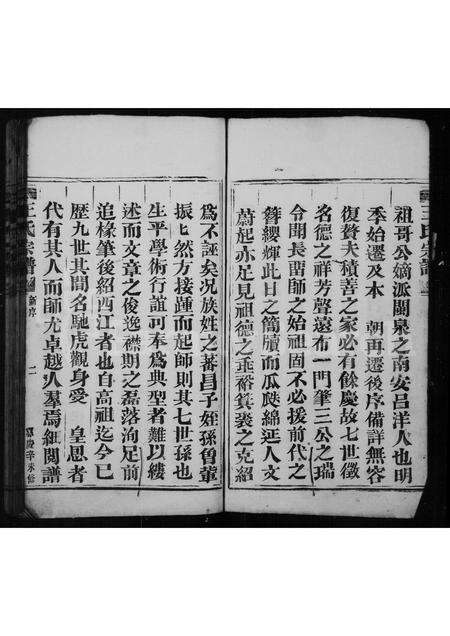 王氏宗譜
祖哥公嫡派閩泉之南安呂洋人也明
季始遷及本　朝再遷後序備詳無容
復贅夫積善之家必有餘慶故七世徵
名德之祥芳聲遠布一門筆三公之瑞
令聞長留師之始祖固不必援前代之
簪纓輝此日之簡牘而瓜瓞綿延人文
蔚起亦足見祖德之垂裕箕裘之克紹
爲不誣矣况族姓之蕃昌子姓孫魯輩
振匕然方接踵而起師則其七世孫也
生平學術行誼可奉爲典型者難以縷
述而文章之俊逸襟期之磊落洵足前
追椽筆後紹西江者也自高祖迄今已
歷九世其間名馳虎觀身愛　皇恩者
代有其人而師尤卓越人羣焉細閱譜
王氏宗譜
新序
二